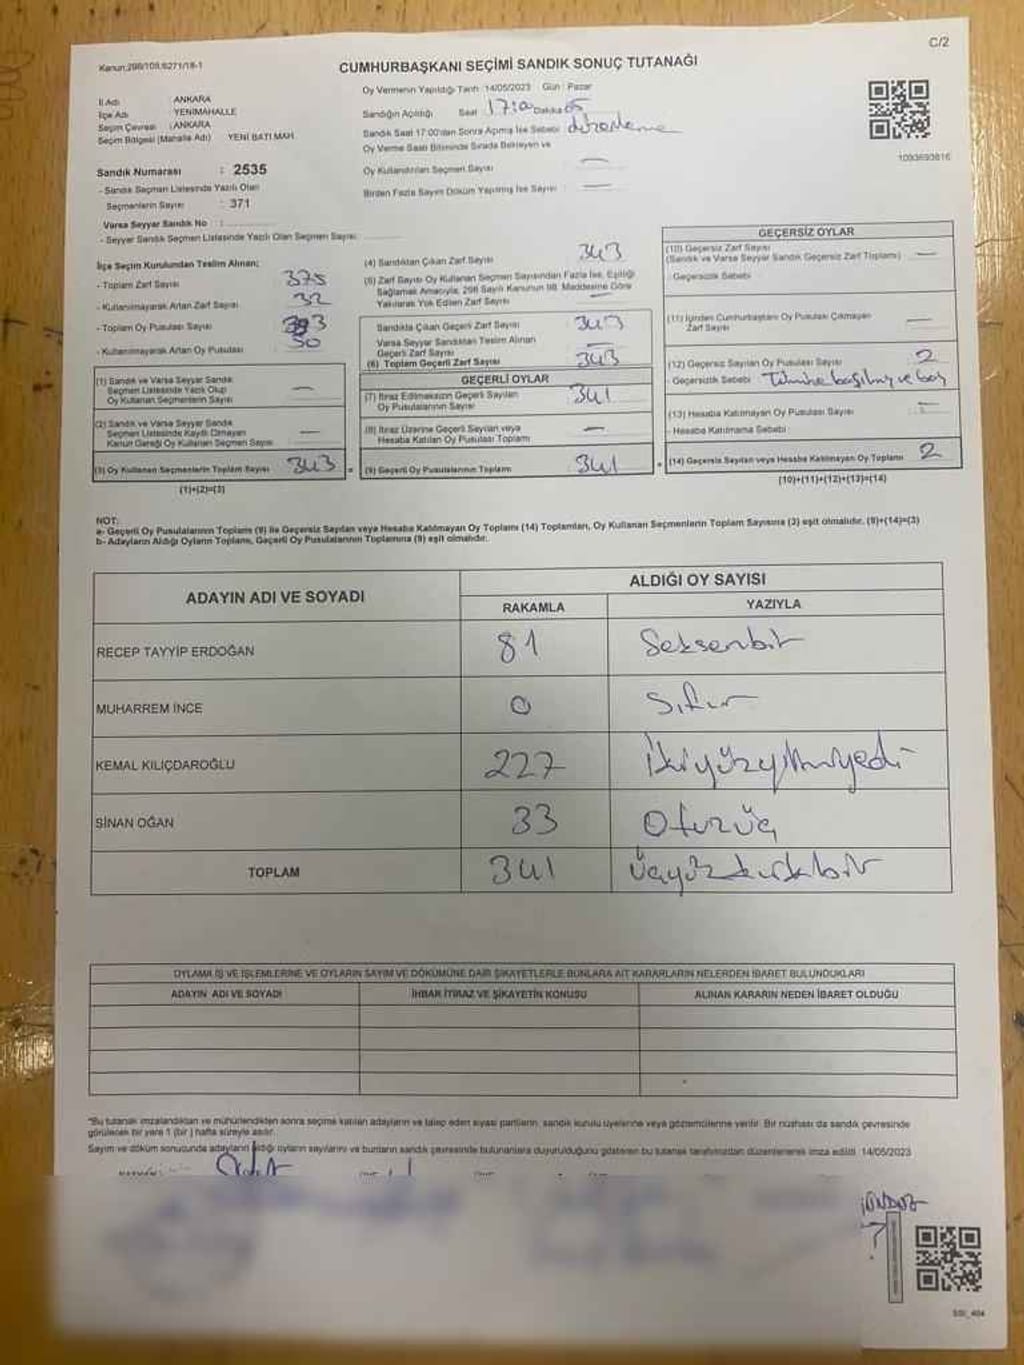 C/2
Kanun:298/105,6271/18-1
CUMHURBAŞKANI SEÇİMİ SANDIK SONUÇ TUTANAĞI
İl Adı : ANKARA
İlçe Adı : YENİMAHALLE
Seçim Çevresi : ANKARA
Seçim Bölgesi (Mahalle Adı) YENİ BATI MAH.
Sandık Numarası : 2535
- Sandık Seçmen Listesinde Yazılı Olan
Seçmenlerin Sayısı : 371
Varsa Seyyar Sandık No :
- Seyyar Sandık Seçmen Listesinde Yazılı Olan Seçmen Sayısı
Oy Vermenin Yapıldığı Tarih 14/05/2023 Gün : Pazar
Sandığın Açıldığı Saat 17:00 Dakika 05
Sandık Saat 17:00'dan Sonra Açılmış İse Sebebi düzenleme
Oy Verme Saati Bitiminde Sırada Bekleyen ve
Oy Kullandırılan Seçmen Sayısı —
Birden Fazla Sayım Döküm Yapılmış İse Sayısı : —
1093693816
İlçe Seçim Kurulundan Teslim Alınan;
- Toplam Zarf Sayısı 375
- Kullanılmayarak Artan Zarf Sayısı 32
- Toplam Oy Pusulası Sayısı 393
- Kullanılmayarak Artan Oy Pusulası 50
(1) Sandık ve Varsa Seyyar Sandık
Seçmen Listesinde Yazılı Olup
Oy Kullanan Seçmenlerin Sayısı —
(2) Sandık ve Varsa Seyyar Sandık
Seçmen Listesinde Kayıtlı Olmayan
Kanun Gereği Oy Kullanan Seçmen Sayısı —
(3) Oy Kullanan Seçmenlerin Toplam Sayısı 343
(1)+(2)=(3)
(4) Sandıktan Çıkan Zarf Sayısı 343
(5) Zarf Sayısı Oy Kullanan Seçmen Sayısından Fazla İse, Eşitliği
Sağlamak Amacıyla, 298 Sayılı Kanunun 98. Maddesine Göre
Yakılarak Yok Edilen Zarf Sayısı —
Sandıkta Çıkan Geçerli Zarf Sayısı 343
Varsa Seyyar Sandıktan Teslim Alınan
Geçerli Zarf Sayısı —
(6) Toplam Geçerli Zarf Sayısı 343
GEÇERLİ OYLAR
(7) İtiraz Edilmeksizin Geçerli Sayılan
Oy Pusulalarının Sayısı 341
(8) İtiraz Üzerine Geçerli Sayılan veya
Hesaba Katılan Oy Pusulası Toplamı —
(9) Geçerli Oy Pusulalarının Toplamı 341
GEÇERSİZ OYLAR
(10) Geçersiz Zarf Sayısı
(Sandık ve Varsa Seyyar Sandık Geçersiz Zarf Toplamı) —
Geçersizlik Sebebi
(11) İçinden Cumhurbaşkanı Oy Pusulası Çıkmayan
Zarf Sayısı —
(12) Geçersiz Sayılan Oy Pusulası Sayısı 2
Geçersizlik Sebebi Tümüne basılmış ve boş
(13) Hesaba Katılmayan Oy Pusulası Sayısı —
- Hesaba Katılmama Sebebi
(14) Geçersiz Sayılan veya Hesaba Katılmayan Oy Toplamı 2
(10)+(11)+(12)+(13)=(14)
NOT:
a- Geçerli Oy Pusulalarının Toplamı (9) ile Geçersiz Sayılan veya Hesaba Katılmayan Oy Toplamı (14) Toplamları, Oy Kullanan Seçmenlerin Toplam Sayısına (3) eşit olmalıdır. (9)+(14)=(3)
b- Adayların Aldığı Oyların Toplamı, Geçerli Oy Pusulalarının Toplamına (9) eşit olmalıdır.
ADAYIN ADI VE SOYADI
ALDIĞI OY SAYISI
RAKAMLA YAZIYLA
RECEP TAYYİP ERDOĞAN 81 Seksenbir
MUHARREM İNCE 0 Sıfır
KEMAL KILIÇDAROĞLU 227 İkiyüzyirmiyedi
SİNAN OĞAN 33 Otuzüç
TOPLAM 341 Üçyüzkırkbir
OYLAMA İŞ VE İŞLEMLERİNE VE OYLARIN SAYIM VE DÖKÜMÜNE DAİR ŞİKAYETLERLE BUNLARA AİT KARARLARIN NELERDEN İBARET BULUNDUKLARI
ADAYIN ADI VE SOYADI İHBAR İTİRAZ VE ŞİKAYETİN KONUSU ALINAN KARARIN NEDEN İBARET OLDUĞU
*Bu tutanak imzalandıktan ve mühürlendikten sonra seçime katılan adayların ve talep eden siyasi partilerin, sandık kurulu üyelerine veya gözlemcilerine verilir. Bir nüshası da sandık çevresinde
görülecek bir yere 1 (bir) hafta süreyle asılır.
Sayım ve döküm sonucunda adayların aldığı oyların sayılarını ve bunların sandık çevresinde bulunanlara duyurulduğunu gösteren bu tutanak tarafımızdan düzenlenerek imza edildi. 14/05/2023